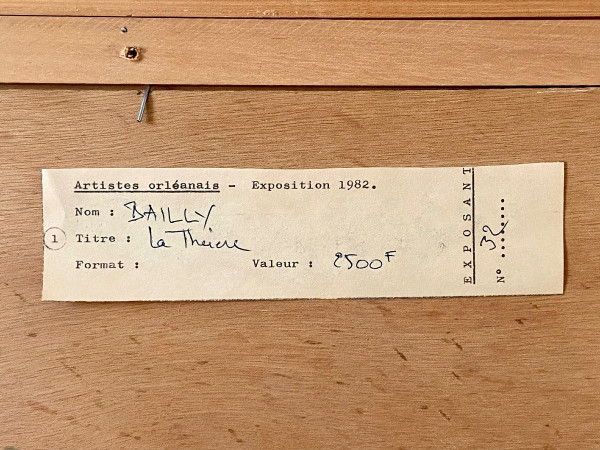 Artistes orléanais - Exposition 1982.
Nom : BAILLY
1 Titre : La Théière
Format : Valeur : 2500F
EXPOSANT
N° 32